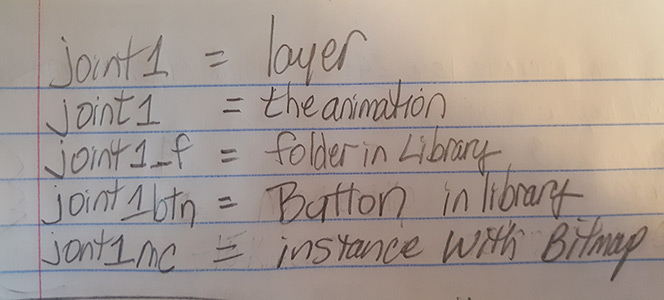 joint1 = layer
joint1 = the animation
joint1_f = folder in Library
joint1btn = Button in library
jont1nc = instance with Bitmap